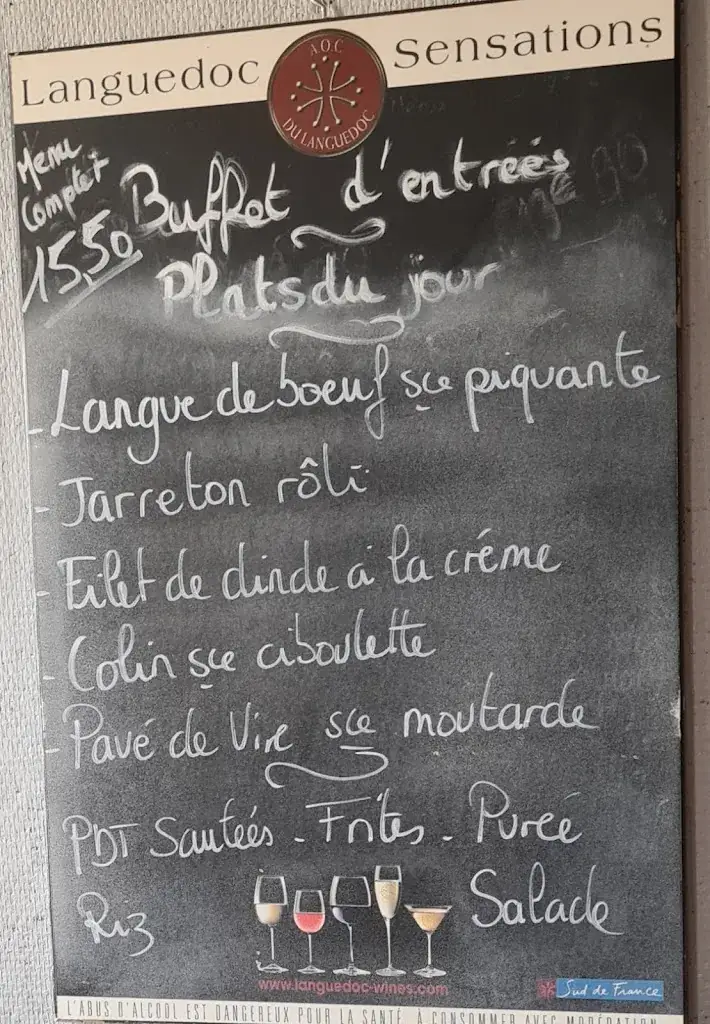 Languedoc Sensations
A.O.C
DU LANGUEDOC
Menu
Complet
15,50
Buffet d'entreés
Plats du jour
- Langue de boeuf sce piquante
- Jarreton rôti
- Filet de dinde a la créme
- Colin sce ciboulette
- Pavé de Vire sce moutarde
PDT Sauteés - Frites - Pureé
Riz Salade
www.languedoc-wines.com
Sud de France
L'ABUS D'ALCOOL EST DANGEREUX POUR LA SANTÉ, A CONSOMMER AVEC MODÉRATION